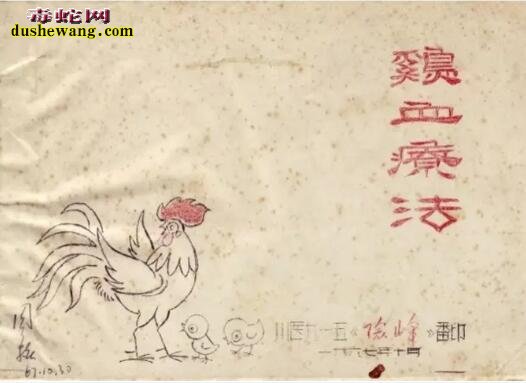 毒蛇网
dushewang.com
鷄血療法
川医九一五《险峰》翻印
一九六七年十月
67.10.30